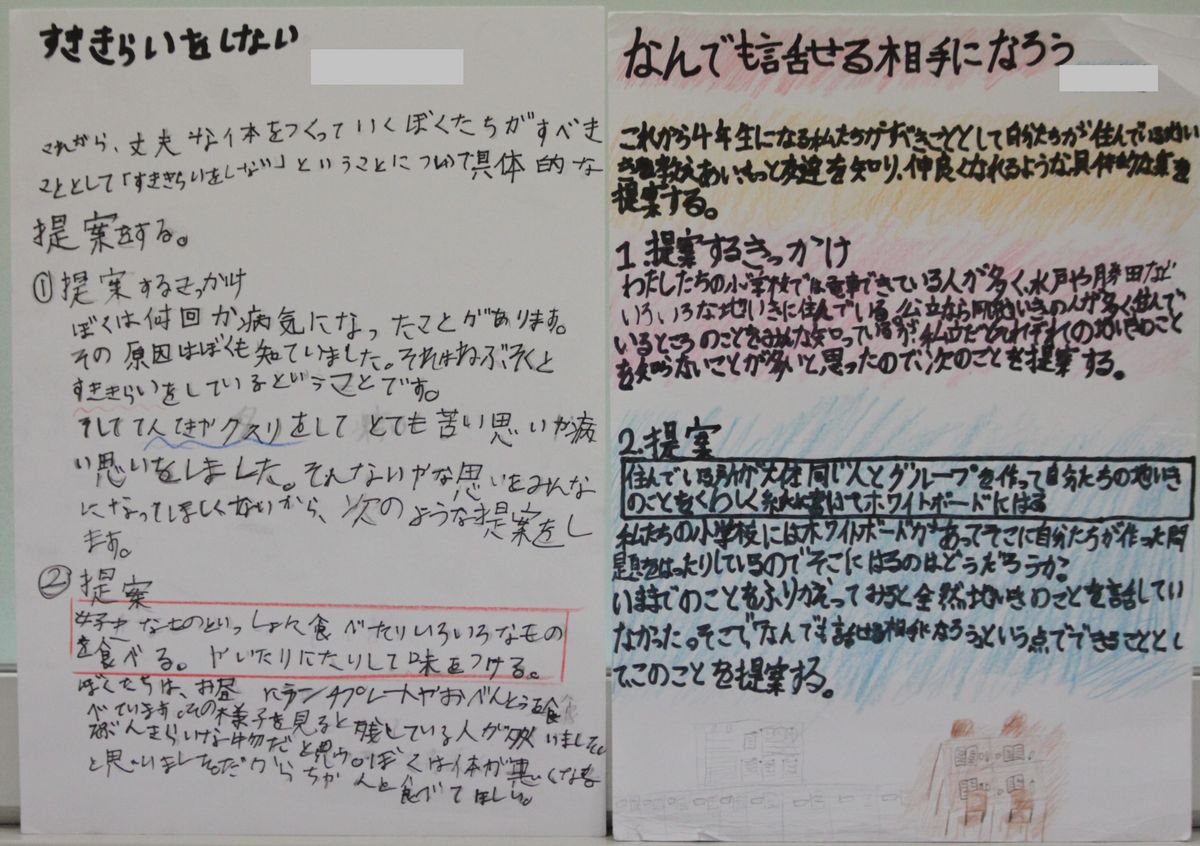 すききらいをしない
これから、丈夫な体をつくっていくぼくたちがすべき
こととして「すききらいをしない」ということについて具体的な
提案をする。
①提案するきっかけ
ぼくは何回か病気になったことがあります。
その原因はぼくも知ていました。それはねぶそくと
すききらいをしているということです。
そしててんてきやクスリをしてとても苦い思いか病
い思いをしました。そんないやな思いをみんな
になってほしくないから、次のような提案をし
ます。
②提案
好きなものといっしょに食べたりいろいろなもの
を食べる。やいたりにたりして味をつける。
ぼくたちは、お昼にランチプレートやおべんとうを食
べています。その様子を見ると残している人が
きらいな物だと思う。ぼくは体が悪くなる
と思いましただからちゃんと食べてほしい。
なんでも話せる相手になろう
これから4年生になる私たちがすべきこととして自分たちが住んでいる地い
きを教えあい、もっと友達を知り、仲良くなれるような具体的な案を
提案する。
1.提案するきっかけ
わたしたちの小学校では電車できている人が多く、水戸や勝田など
いろいろな地いきに住んでいる。公立なら同じ地いきの人が多く住んで
いるところのことをみんな知っているが、私立だとそれぞれの地いきのこと
を知らないことが多いと思ったので、次のことを提案する。
2.提案
住んでいる所が大体同じ人とグループを作って自分たちの地いき
のことをくわしく紙に書いてホワイトボードにはる
私たちの小学校にはホワイトボードがあってそこに自分たちが作った問
題をはったりしているのでそこにはるのはどうだろうか。
いままでのことをふりかえってみると全然地いきのことを話してい
なかった。そこで「なんでも話せる相手になろう」という点でできることとし
てこのことを提案する。